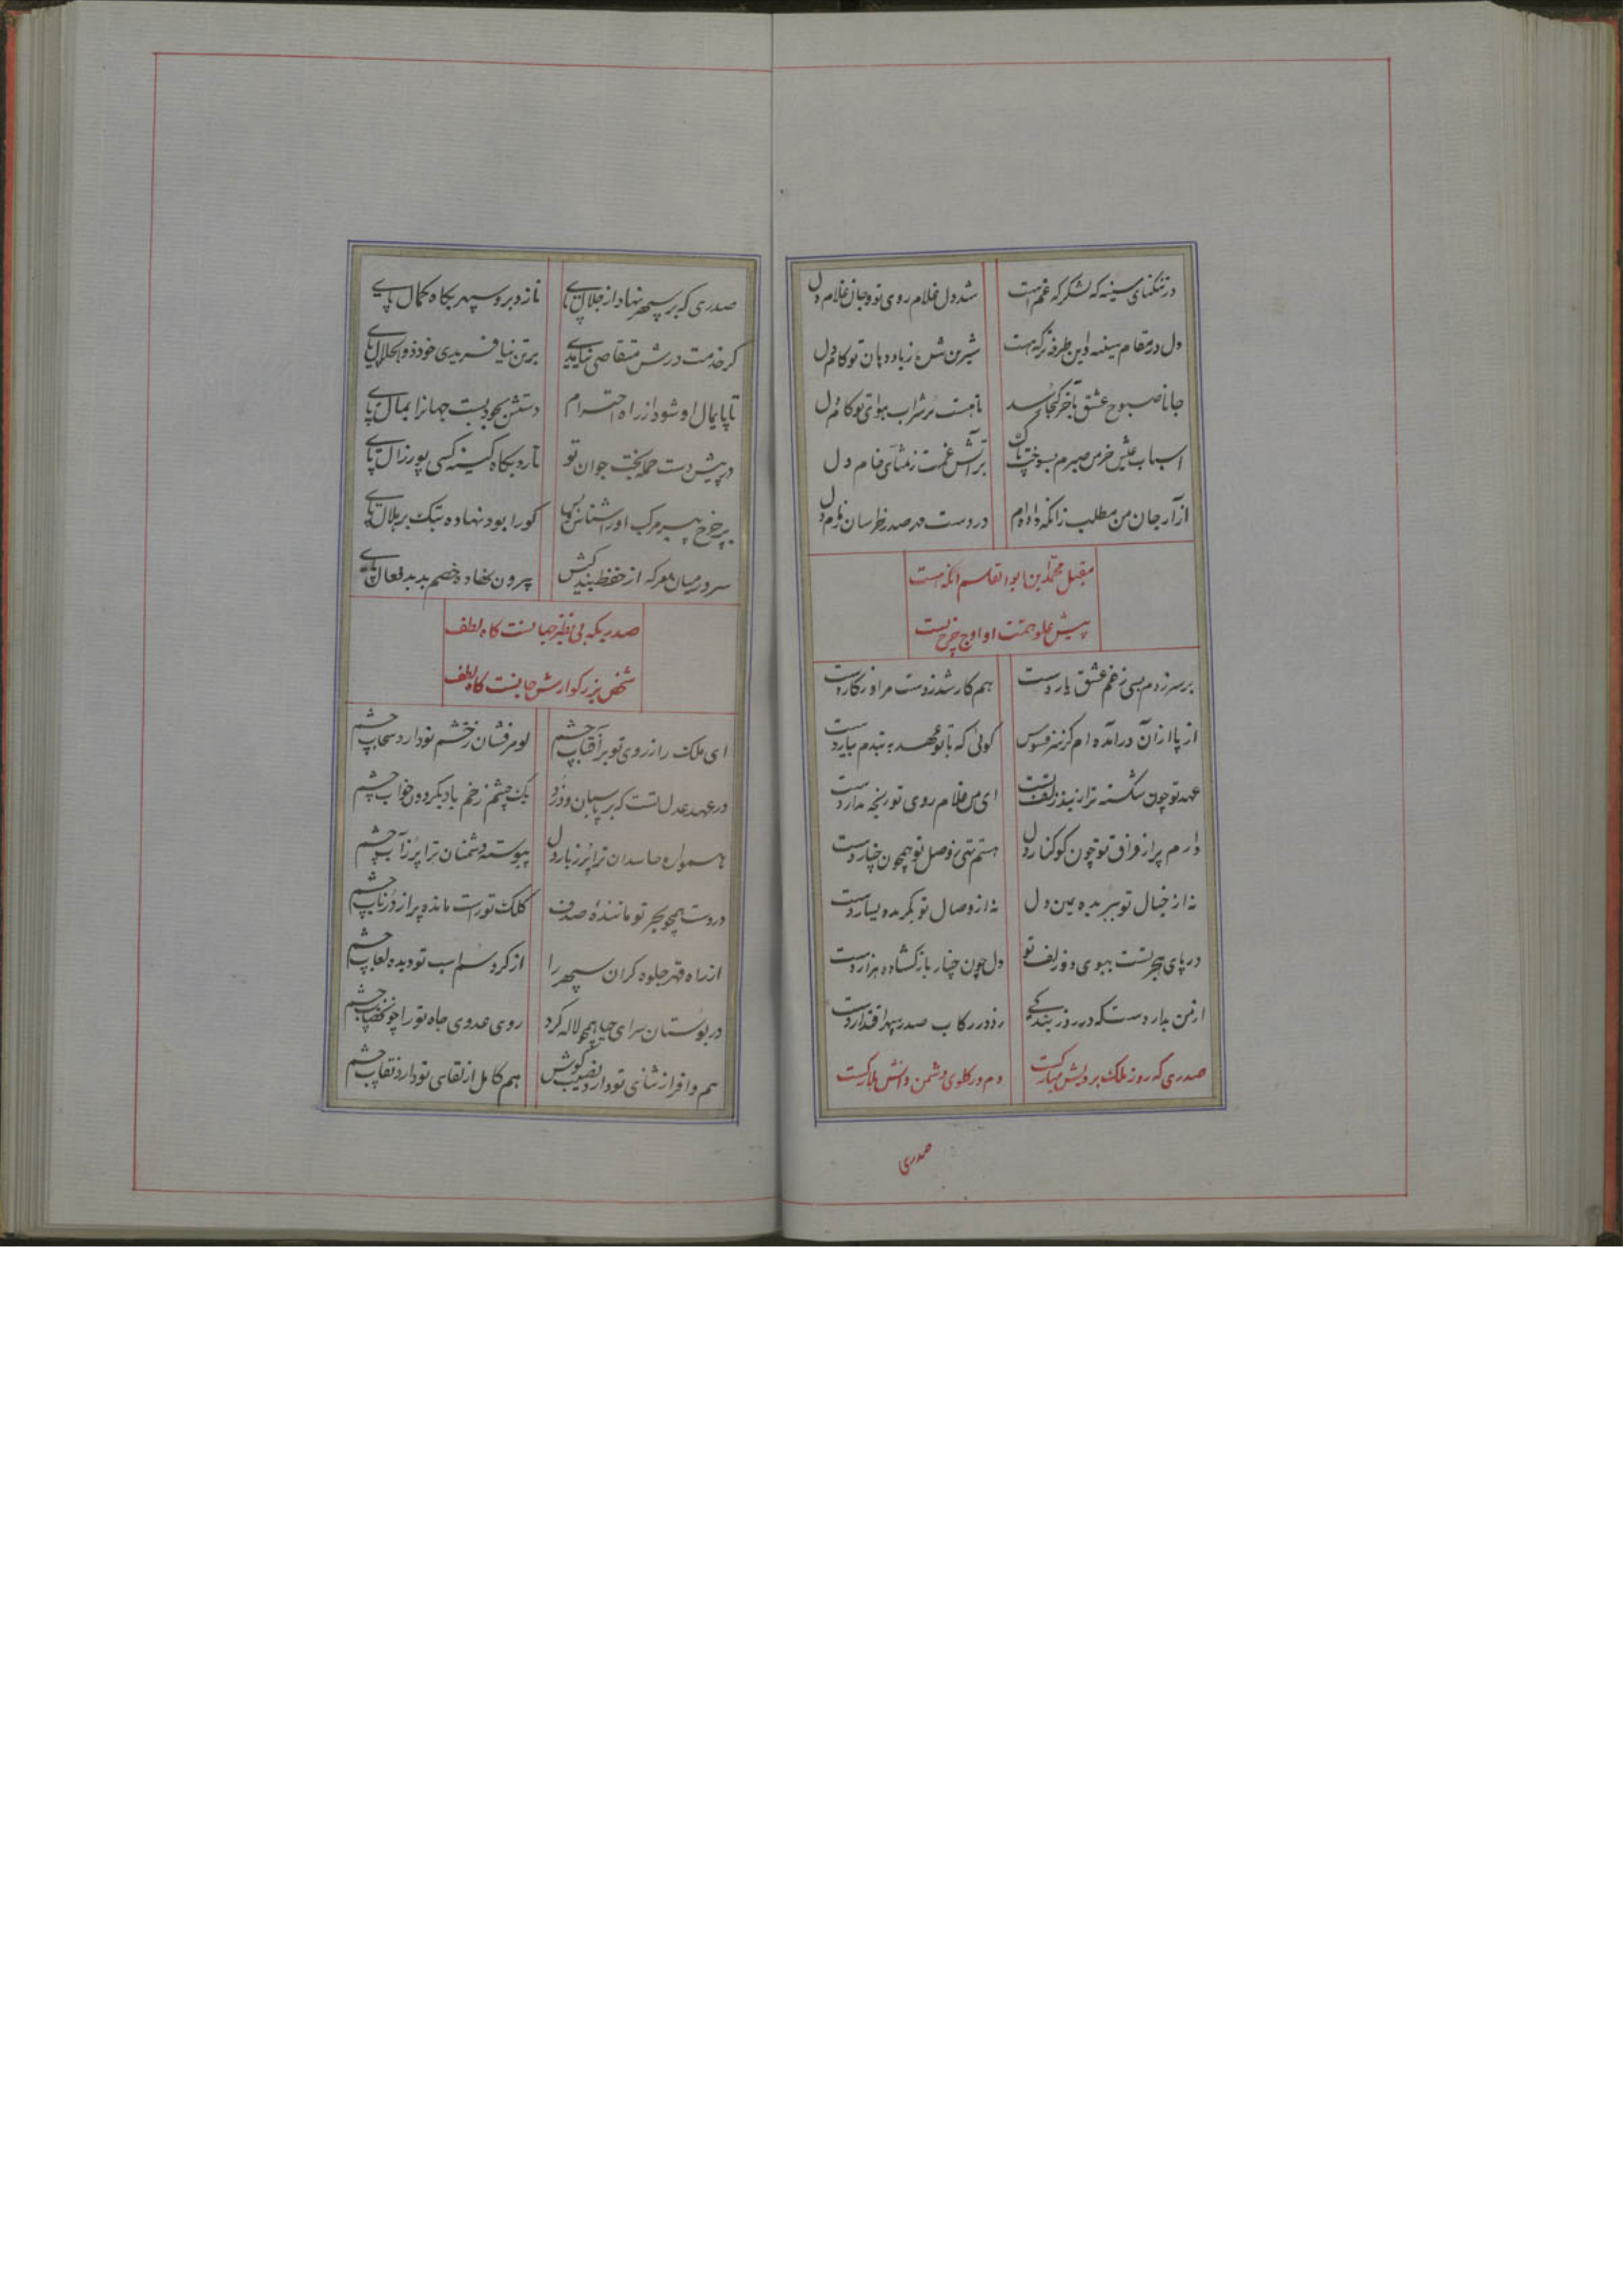 در تنگنای سینه که لشکرکه غم است شد دل غلام روی تو و جان غلام دل
دل در مقام سینه و این طرفه ترکه هست شیرین ز یاد دهان تو کام دل
جانا صبوح عشق بآخر کجا رسد تا هست پر شراب هوای تو کام دل
اسباب عیش خرمن صبرم بسوخت پاک بر آتش غمت ز تمنای خام دل
از آر جان من مطلب زانکه داده‌ام در دست مدح صدر خراسان زمام دل
مقبل محمد ابن ابوالقاسم آنکه هست
پیش علو همت او اوج چرخ پست
بر سر زدم بسی ز غم عشق یار دست هم کار شد ز دست مرا و ز کار دست
از پا از آن درآمده‌ام کز سر فسوس گوئی که با تو عهد به بندم بیار دست
عهد تو چون شکسته تر از بند زلف تست ای من غلام روی تو رنجه مدار دست
دارم پر از فراق تو چون کوکنار دل هستم تهی ز وصل تو همچون چنار دست
نه از خیال تو ببریده یمین دل نه از وصال تو بگزیده یسار دست
در پای هجر تست ببوی دو زلف تو دل چون چنار باز گشاده هزار دست
از من بدار دست که در روز بندگی زد در رکاب صدر سپهر اقتدار دست
صدری که روز ملک برویش مبارکست دم در گلوی دشمن دانش بلارکست
صدری
صدری که بر سپهر نهاد از جلال پای نازد برو سپهر بگاه کمال پای
گر خدمت درش متقاضی نیامدی بر تن نیافریدی خود ذوالجلال پای
تا پایمال او شود از راه احترام دستش بجود بست جهانرا بمال پای
در پیش دست حمله بخت جوان تو نارد بگاه کینه کسی پور زال پای
بر چرخ پیر مرکب او را شناس بس کو را بود نهاده سبک بر هلال پای
سر در میان معرکه از حفظ بند کش بیرون نهاده خصم بد بدفعال پای
صدریکه بی نظیر جهانست گاه لطف
شخص بزرگوارش جانست گاه لطف
ای ملک را ز روی تو بر آفتاب چشم لومر فشان ز خشم تو دارد سحاب چشم
در عهد عدل تست که بر پاسبان و دزد یک چشم زخم باد نگردون خواب چشم
همواره حاسدان ترا پر ز بار دل پیوسته دشمنان ترا پر ز آب چشم
در دست همچو بحر تو ماننده صدف کلک تو راست مانده پر از در ناب چشم
از راه قهر جلوه کران سپهر را از گرد سم اسب تو دیده لعاب چشم
در بوستان سرای جهان همچو لاله کرد روی عدوی جاه تو را چون خضاب چشم
هم وافر از ثنای تو دارد نصیب گوش هم کامل از لقای تو دارد نقاب چشم